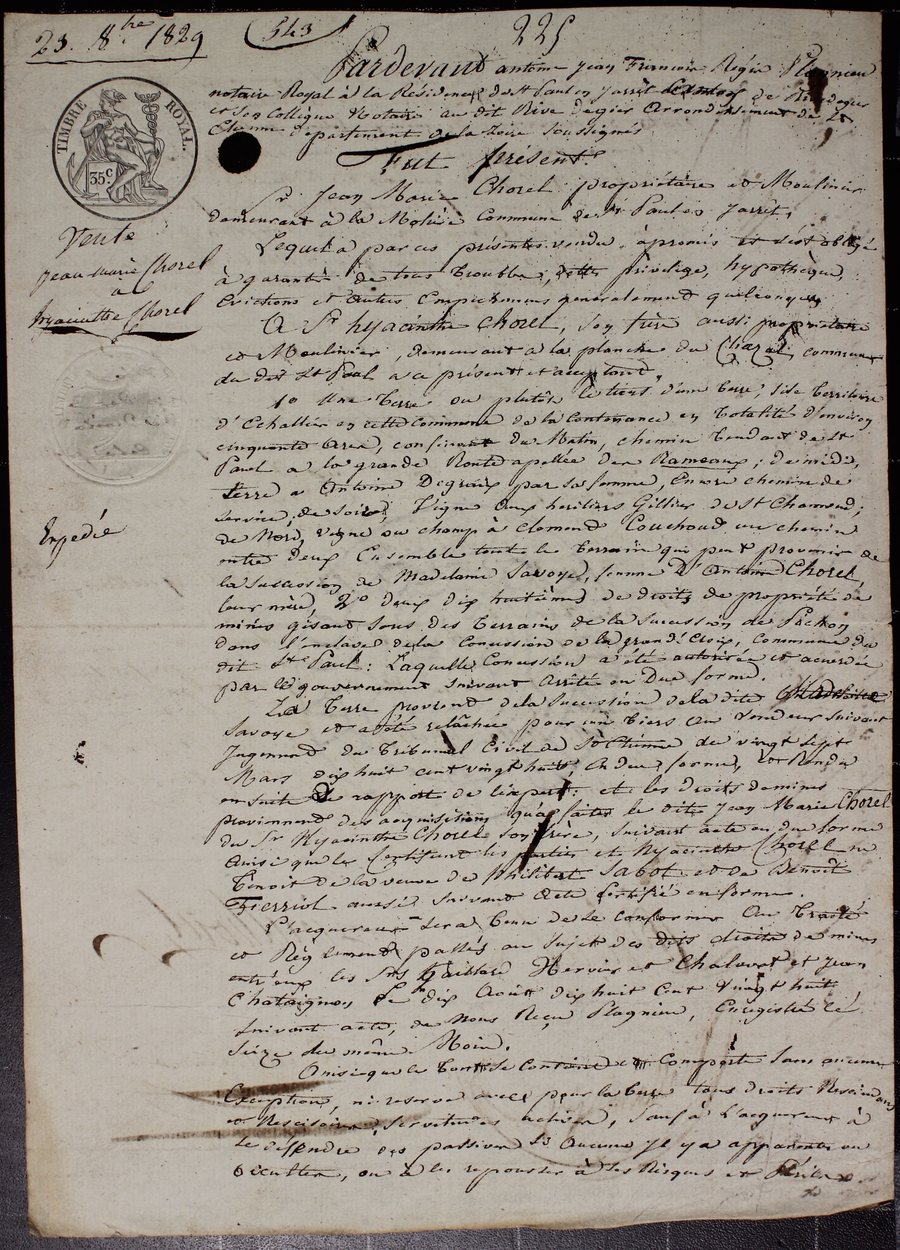 23. 8bre 1829
543
225
TIMBRE ROYAL.
35c
Vente
jean marie Chorel
a
hyacinthe Chorel
Expedié
Pardevant antoine jean François Régis Plagnieu
notaire Royal à la Résidence de St Paul en Jarrêt de Rive de gier
et son Collègue Notaire au dit Rive de gier Arrondissement de St
Etienne département de la Loire Soussignés
Fut présent.
Sr Jean Marie Chorel propriétaire et Moulinier
demeurant à la Commune de St Paul en Jarrêt,
Lequel a par ces présentes vendu, à promis et s'est obligé
à garantir de tous troubles, dettes privilège, hypothèque,
Evictions et autres Empechemens généralement quelconques
A Sr hyacinthe Chorel, son frère aussi propriétaire
et Moulinier, demeurant a la planche du Chazal, commune
du dit St Paul a ce présent et acceptant,
1o Une Terre ou plutôt le tiers d'une Terre, sise Territoire
d'Echallier en cette Commune de la Contenance en totalité d'environ
cinquante Ares, confinant du Matin, chemin tendant de St
Paul a la grande Route appellée des Rameaux; de midi,
terre a Antoine Degraix par sa femme, encore chemin de
service; de soir, Vigne aux heritiers Gillier de St Chamond;
de Nord, vigne ou champ à Clemend Couchoud un chemin
entre deux Ensemble tout le terrain qui peut provenir de
la succession de Madelaine Savoye, femme d'Antoine Chorel,
leur mère, 2o deux dix huitièmes de droits de propriété de
mines gisant sous des terrains de la Succession de
dans l'enclave de la Concession de la grand' Croix, commune du
dit St Paul: Laquelle Concession a été autorisée et accordée
par le gouvernement suivant Arrêté en Due forme.
La Terre provient de la succession de la dite Madelaine
Savoye et a été relâchée pour un tiers au vendeur suivant
Jugement du Tribunal Civil de St Etienne du vingt sept
Mars dix huit cent vingt huit, en due forme, et Rendu
en suite de rapport de l'expert: et les droits de mines
proviennent des acquisitions qu'a faites le dit Jean Marie Chorel
du Sr Hyacinthe Chorel son frère, suivant acte en due forme
Ainsi que le Certifient les parties et Hyacinthe Chorel
Benoit de la veuve de Sabot et de Benoît
aussi suivant Acte certifié en forme.
L'acquereur sera tenu de se conformer Au Traité
et Réglement passés au sujet des dits droits de mines
entr'eux les Srs Gaillard Hervier et Chalvert et Jean
Chataignon, Le dix Août dix huit Cent Vingt huit,
suivant acte, de Nous Reçu Plagnieu, Enregistré le
seize du même Mois.
Ainsi que le tout se Contient et comporte sans aucune
Exception, ni reserve avec pour la terre tous droits Rescindans
et Rescisoires, Servitudes actives, sauf à l'acquereur à
se deffendre des passives si aucune Il y a apparentes ou
occultes, ou à les repousser à ses Risques et Périls